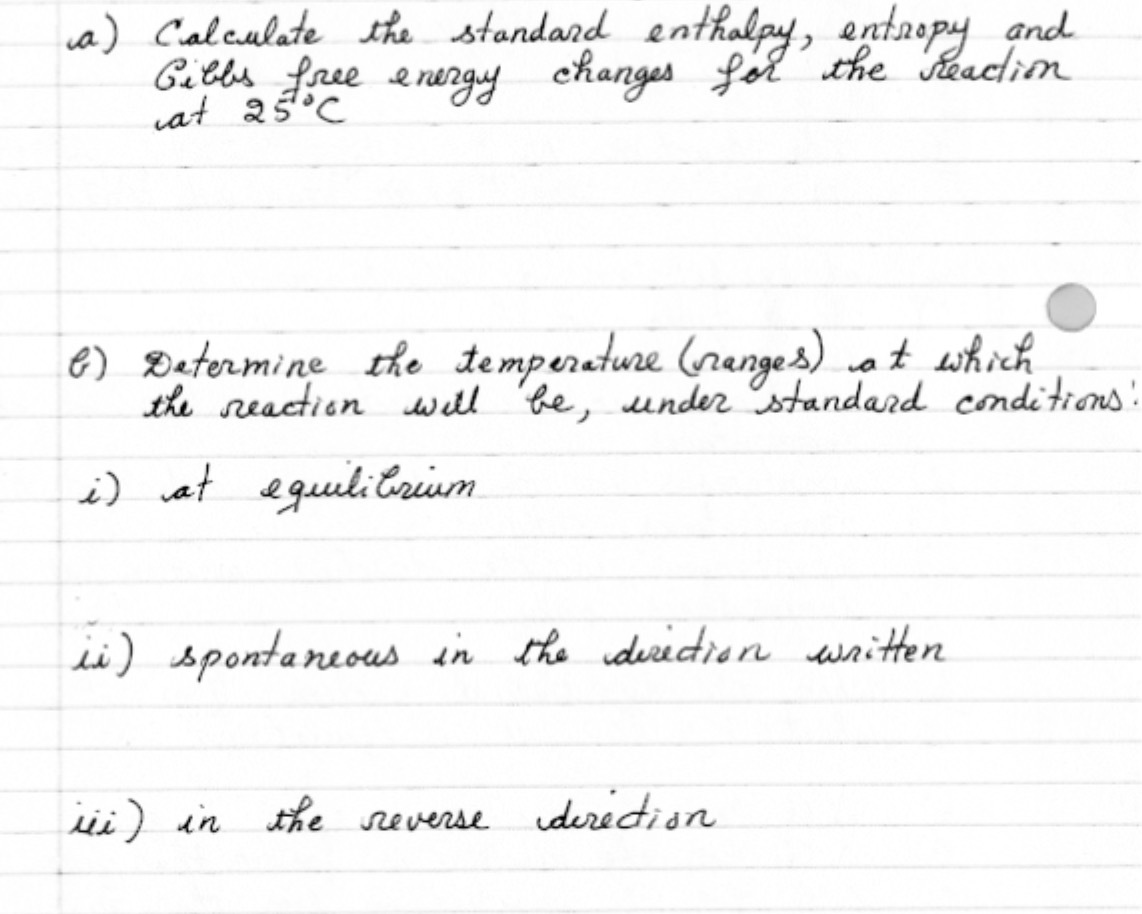 a) Calculate the standard enthalpy, entropy and
Gibbs free energy changes for the reaction
at 25°C
b) Determine the temperature (ranges) at which
the reaction will be, under standard conditions:
i) at equilibrium
ii) spontaneous in the direction written
iii) in the reverse direction